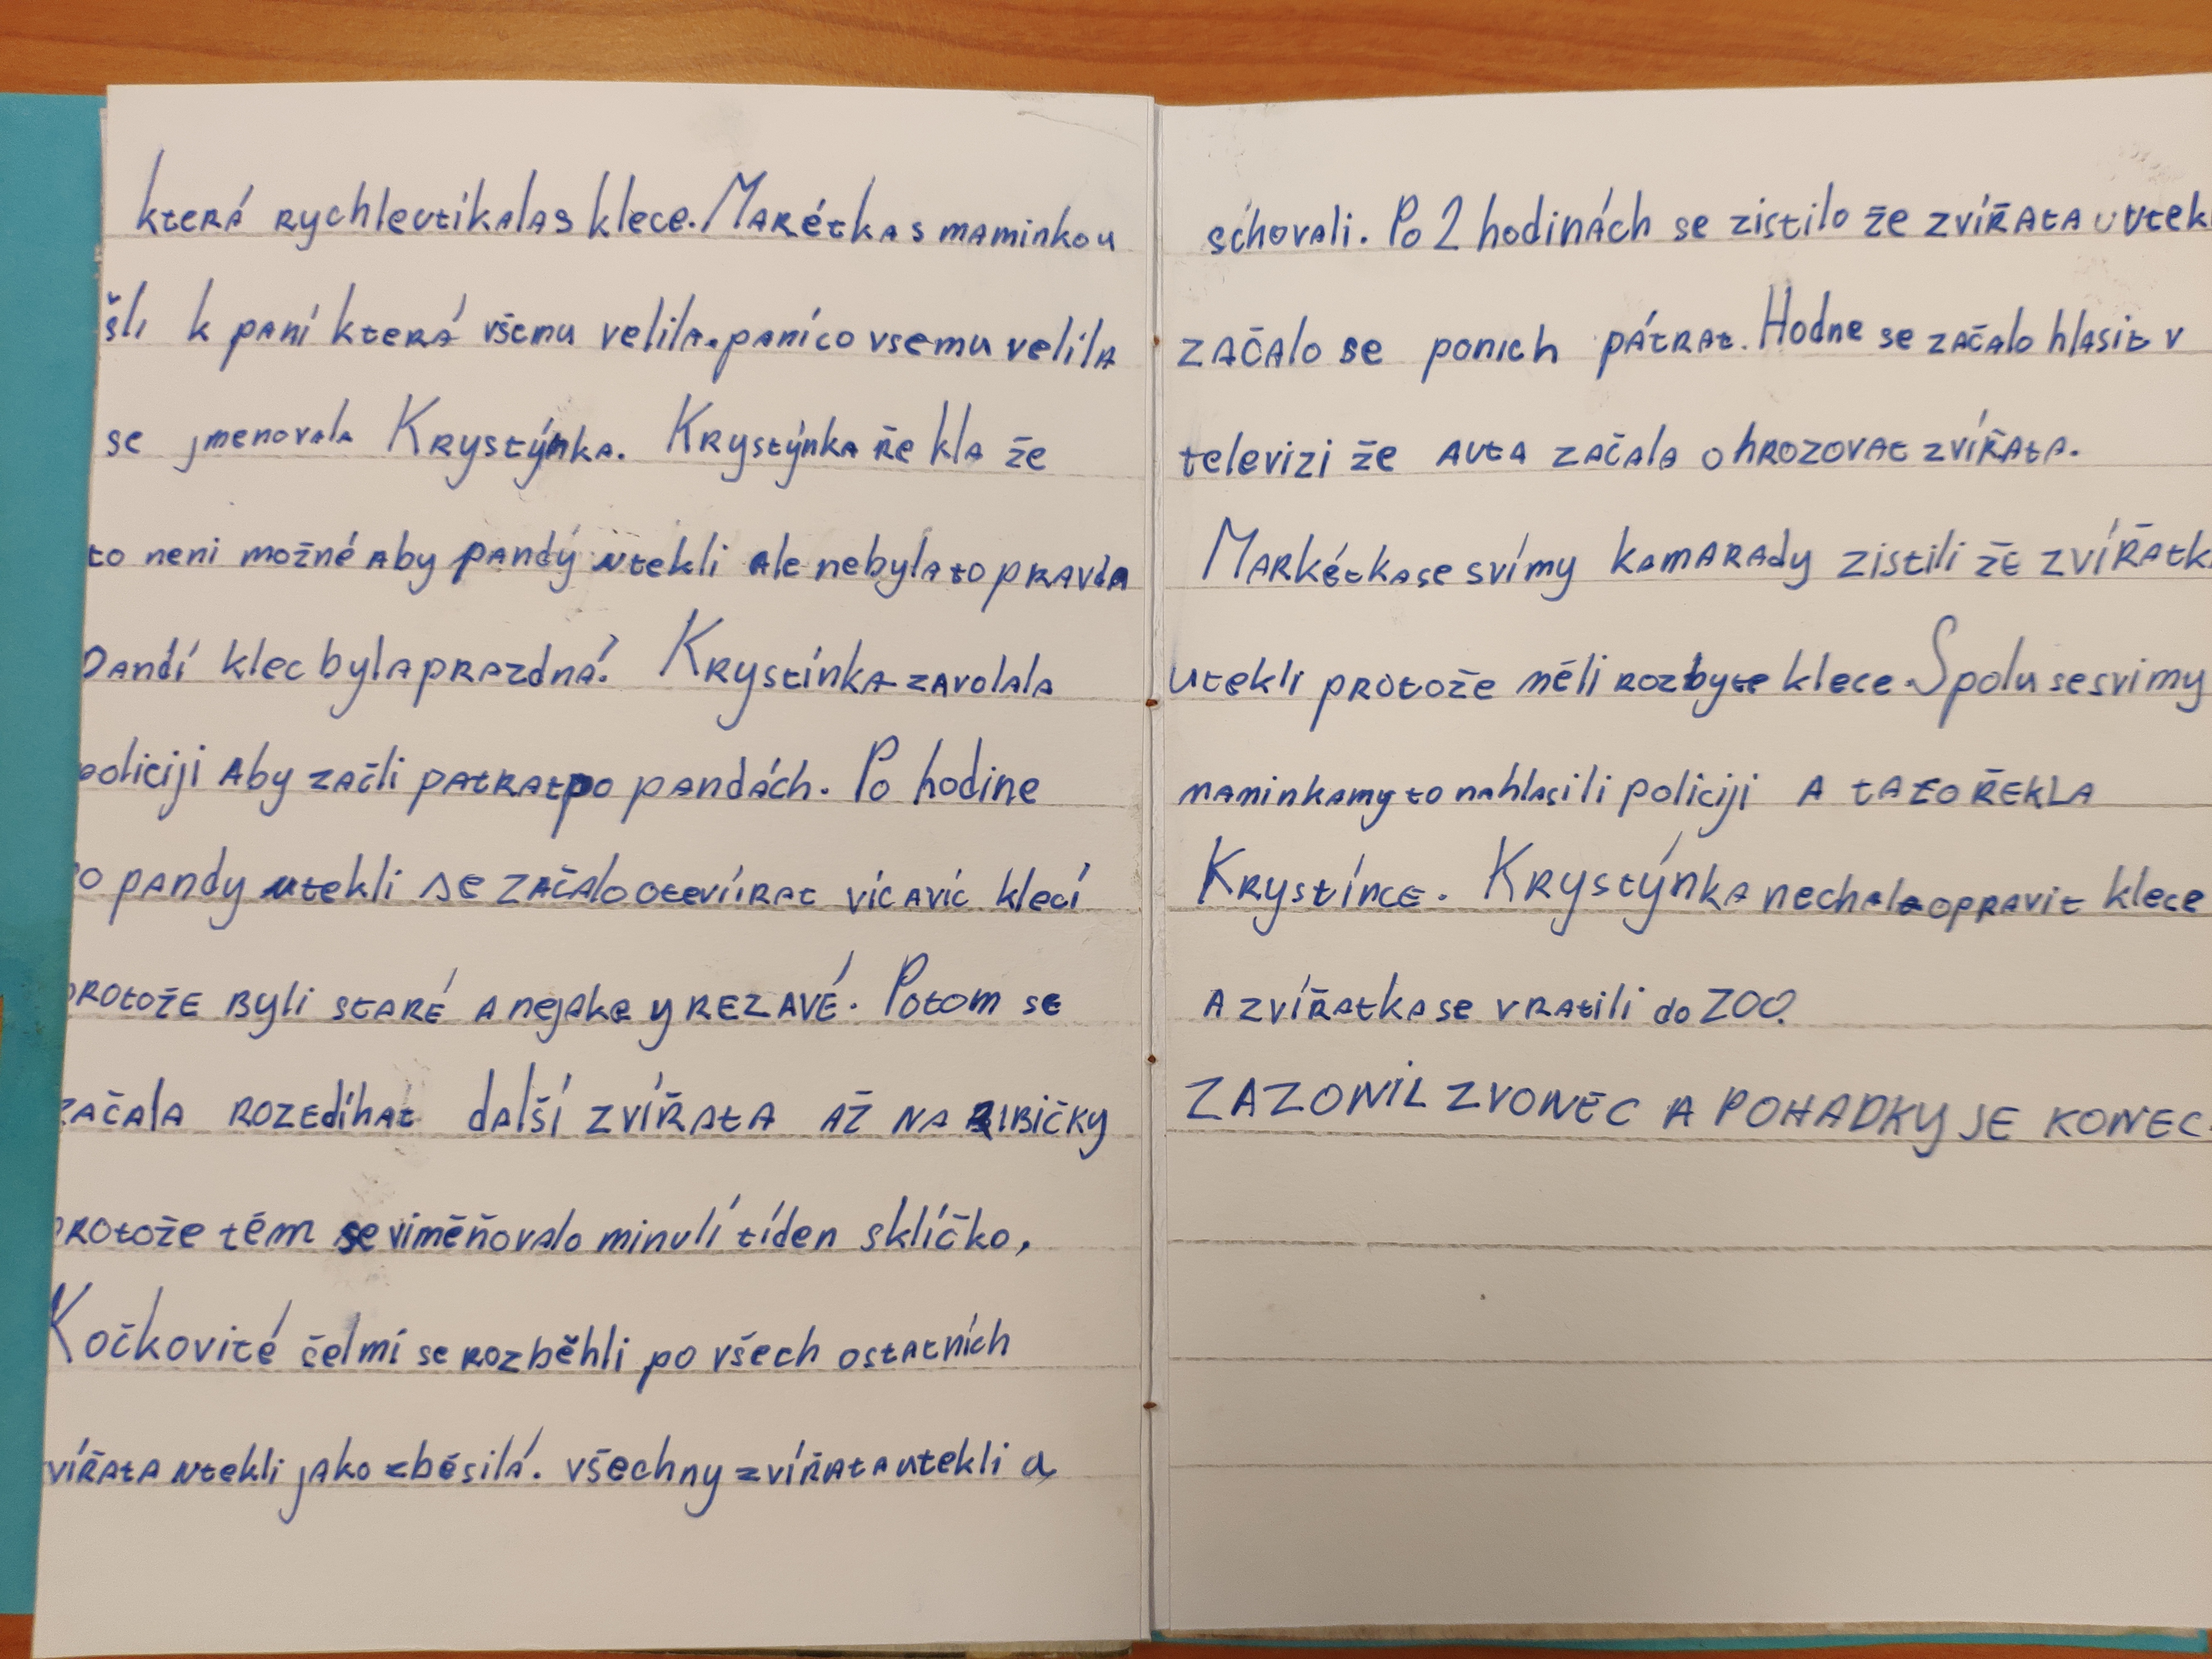 která rychleutikalas klece. Marétka s maminkou
šli k paní která všemu velila. paníco vsemu velila
se jmenovala Krystýnka. Krystýnka ře kla že
to neni možné aby pandý utekli ale nebylato pravda
Pandí klec bylaprazdná. Krystínka zavolala
policiji aby začli patratpo pandách. Po hodine
co pandy utekli se začalootevíırat víc avíc klecí
protože byli staré a nejake y rezavé. Potom se
začala rozedíhat další zvířata až na ribičky
protože tém se viměňovalo minulí tíden sklíčko,
Kočkovité šelmí se rozběhli po všech ostatních
zvířata utekli jako zběsilá. všechny zvířata utekli a
schovali. Po 2 hodinách se zistilo že zvířata u utek
začalo se ponich pátrat. Hodne se začalo hlasit v
televizi že auta začala ohrozovat zvířata.
Markétkase svímy kamarady zistili že zvířatk
utekli protože měli rozbyte klece. Spolu sesvimy
maminkamy to nahlasili policiji a tato řekla
Krystínce. Krystýnka nechalaopravit klece
a zvířatkase vratili do ZOO.
ZAZONIL ZVONEC A POHADKY JE KONEC.